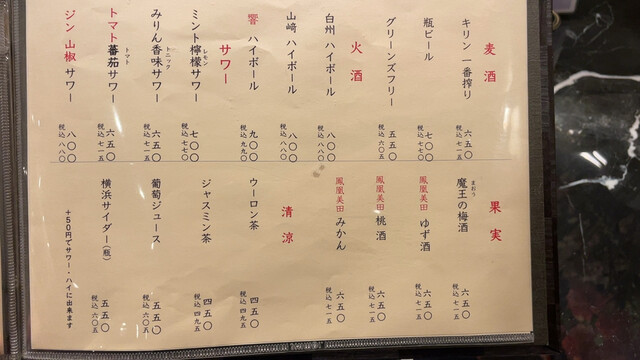 麦酒
キリン 一番搾り
六五〇
税込 七一五
瓶ビール
七〇〇
税込 七七〇
グリーンズフリー
五五〇
税込 六〇五
火酒
白州 ハイボール
八〇〇
税込 八八〇
山﨑 ハイボール
八〇〇
税込 八八〇
響 ハイボール
九〇〇
税込 九九〇
サワー
ミント檸檬サワー
レモン
七〇〇
税込 七七〇
みりん香味サワー
トニック
六五〇
税込 七一五
トマト蕃茄サワー
トマト
六五〇
税込 七一五
ジン 山椒 サワー
八〇〇
税込 八八〇
果実
魔王の梅酒
まおう
六五〇
税込 七一五
鳳凰美田 ゆず酒
六五〇
税込 七一五
鳳凰美田 桃酒
六五〇
税込 七一五
鳳凰美田 みかん
六五〇
税込 七一五
清涼
ウーロン茶
四五〇
税込 四九五
ジャスミン茶
四五〇
税込 四九五
葡萄ジュース
五五〇
税込 六〇五
横浜サイダー(瓶)
五五〇
税込 六〇五
+50円でサワー・ハイに出来ます